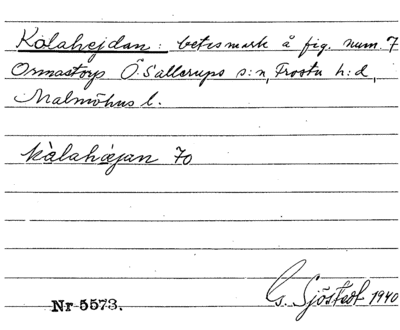 Kolahejdan: betesmark å fig. num. 7
Ormastorp Ö. Sallerups s:n, Frosta h:d,
Malmöhus l.
kålahæjan 70
G. Sjöstedt 1940
Nr 5573.